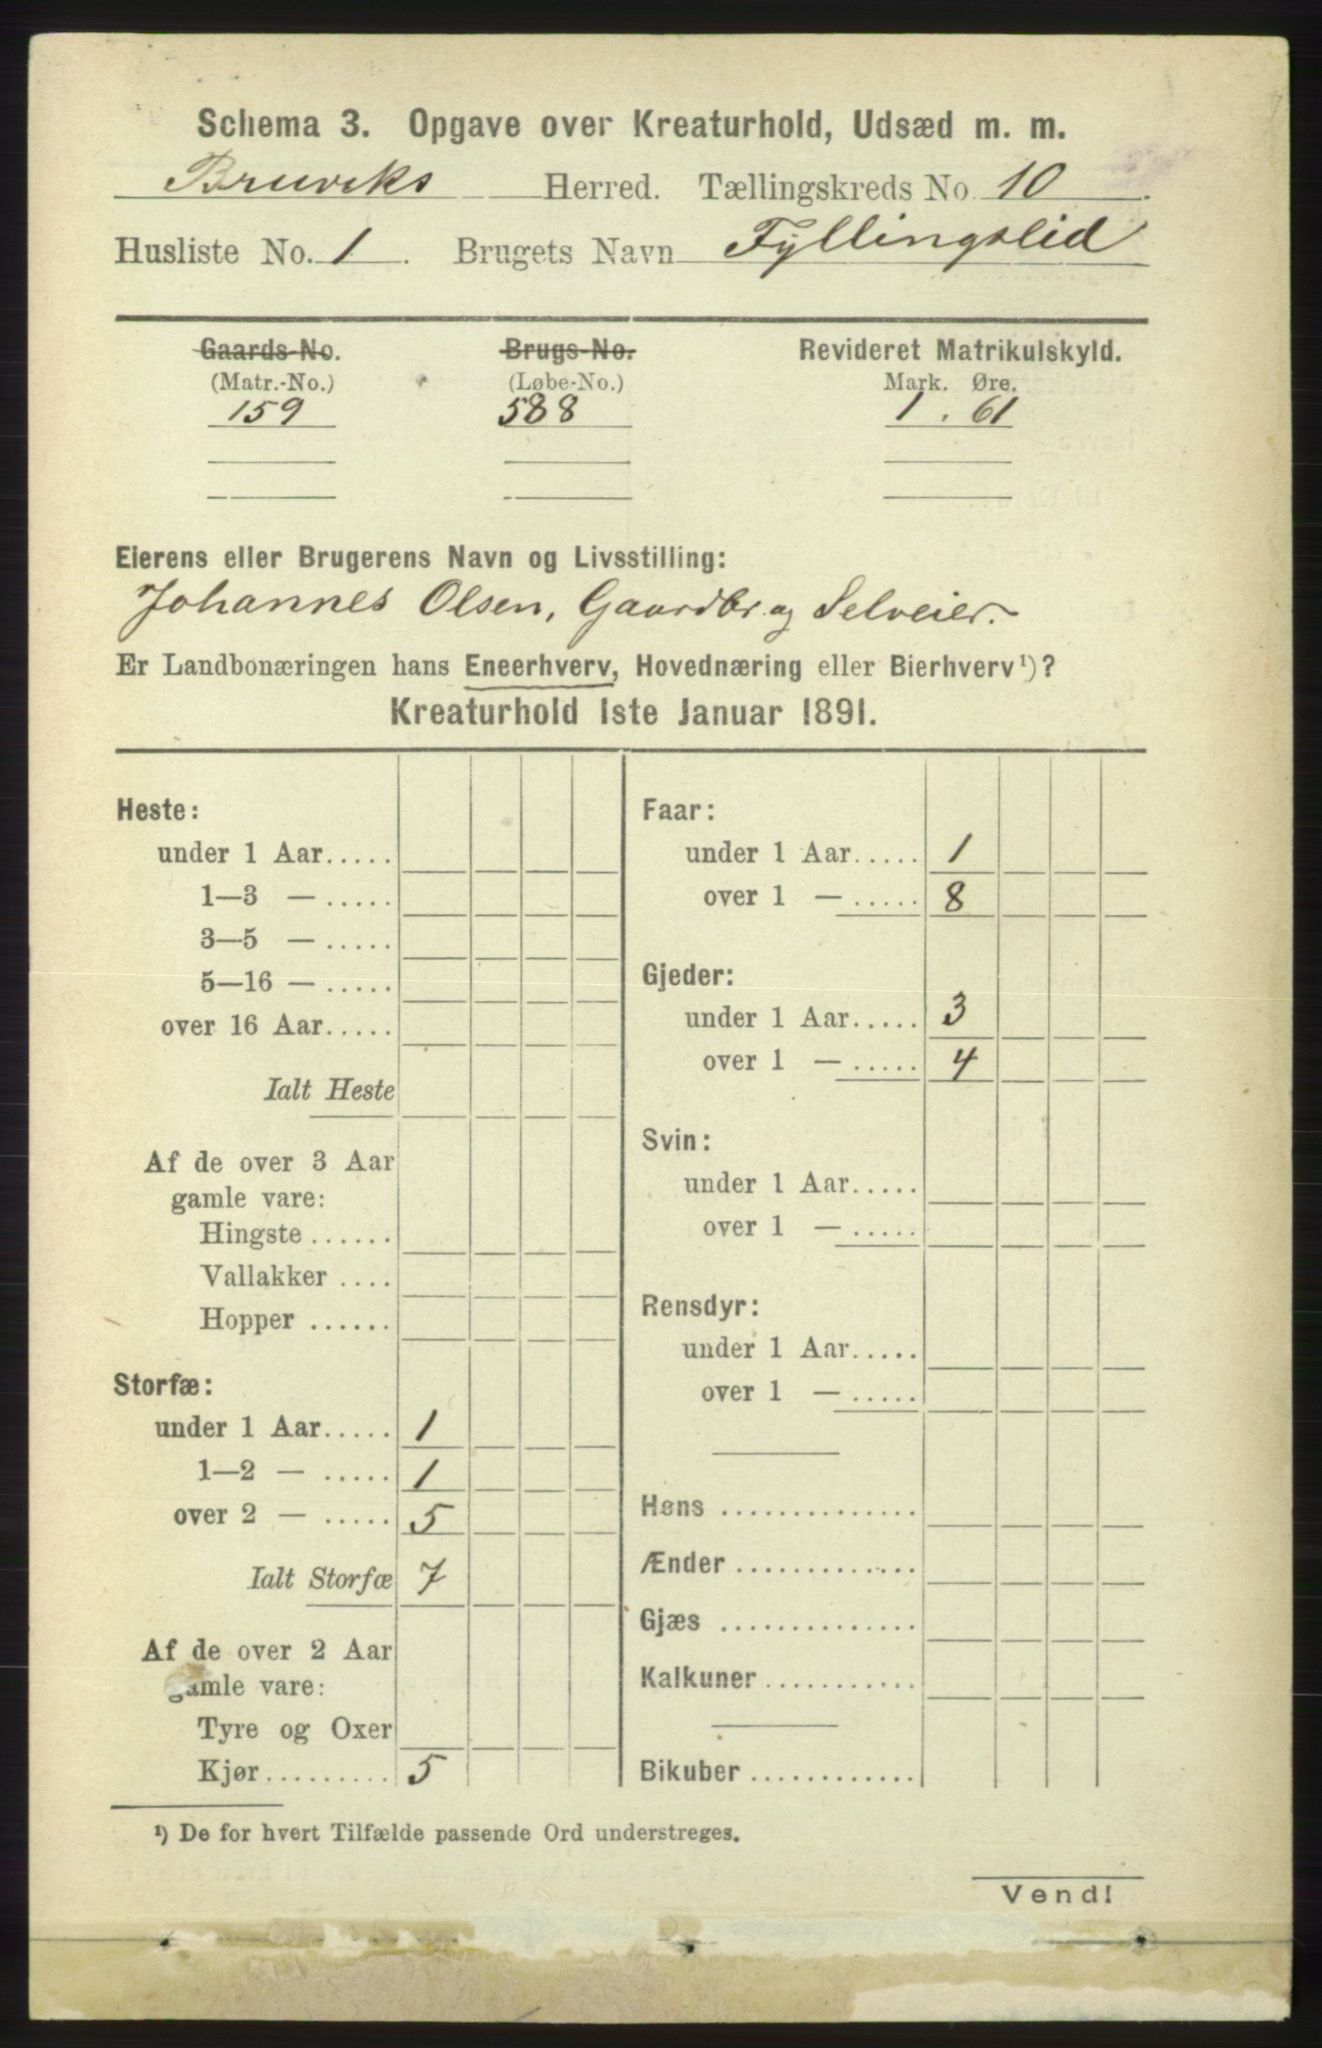 Schema 3. Opgave over Kreaturhold, Udsæd m. m.
Bruviks Herred. Tællingskreds No. 10.
Husliste No. 1. Brugets Navn Fyllingslid
Gaards-No. Brugs-No. Revideret Matrikulskyld.
(Matr.-No.) (Løbe-No.) Mark. Øre.
159 588 1. 61
Eierens eller Brugerens Navn og Livsstilling:
Johannes Olsen, Gaardbr og Selveier.
Er Landbonæringen hans Eneerhverv, Hovednæring eller Bierhverv¹)?
Kreaturhold 1ste Januar 1891.
Heste:
under 1 Aar.....
1—3 — .....
3—5 — .....
5—16 — .....
over 16 Aar.....
Ialt Heste
Af de over 3 Aar
gamle vare:
Hingste ......
Vallakker ....
Hopper ......
Storfæ:
under 1 Aar..... 1
1—2 — ..... 1
over 2 — ..... 5
Ialt Storfæ 7
Af de over 2 Aar
gamle vare:
Tyre og Oxer
Kjør......... 5
Faar:
under 1 Aar..... 1
over 1 — ..... 8
Gjeder:
under 1 Aar..... 3
over 1 — ..... 4
Svin:
under 1 Aar.....
over 1 — .....
Rensdyr:
under 1 Aar.....
over 1 — .....
Høns ..............
Ænder .............
Gjæs ..............
Kalkuner ...........
Bikuber ............
¹) De for hvert Tilfælde passende Ord understreges.
Vend!